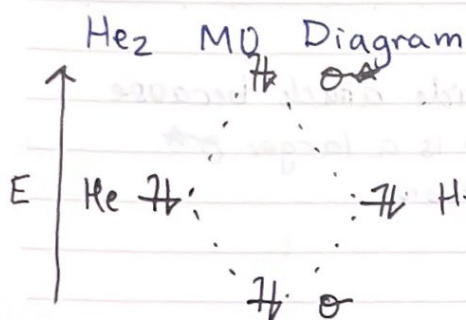 He₂ MO Diagram
σ*
E He H
σ